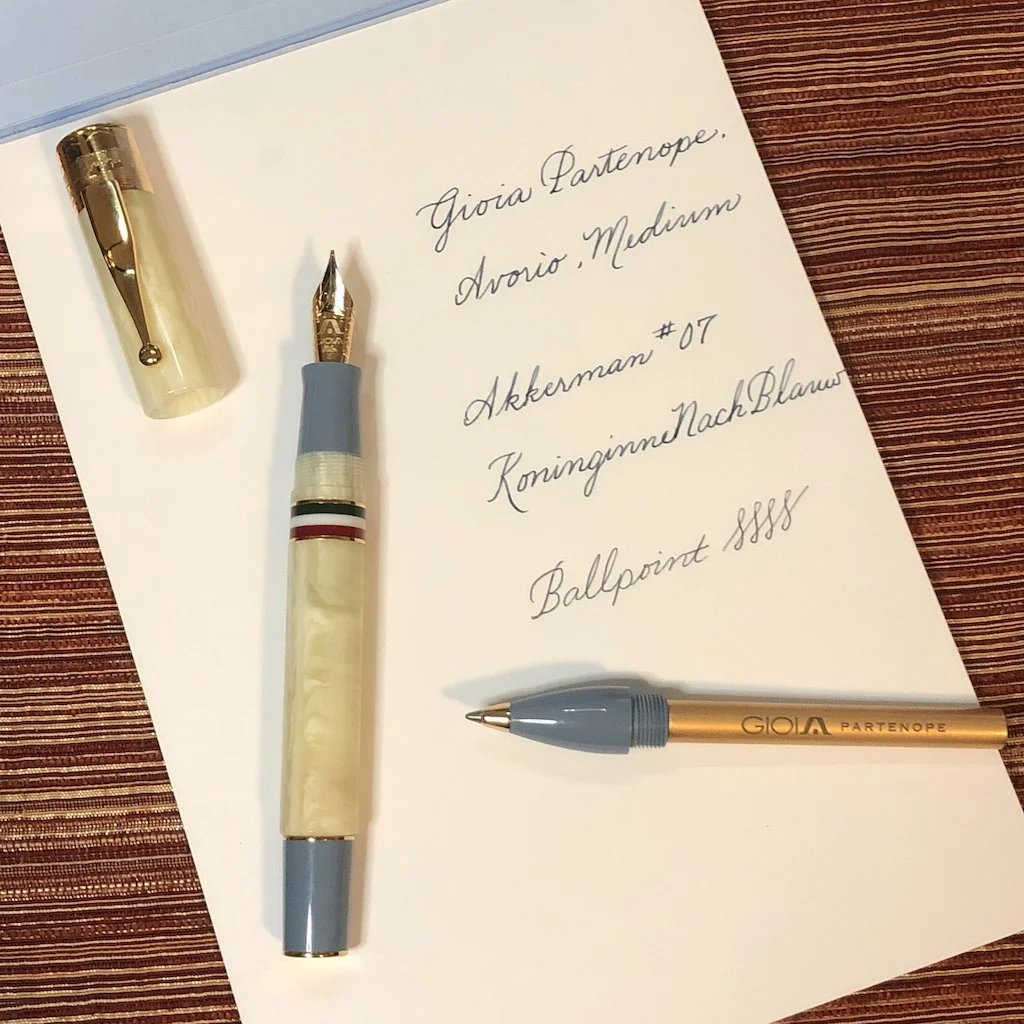 Gioia Partenope.
Avorio, Medium
Akkerman #07
KoninginneNachBlauw
Ballpoint
GIOIA PARTENOPE
GIOIA